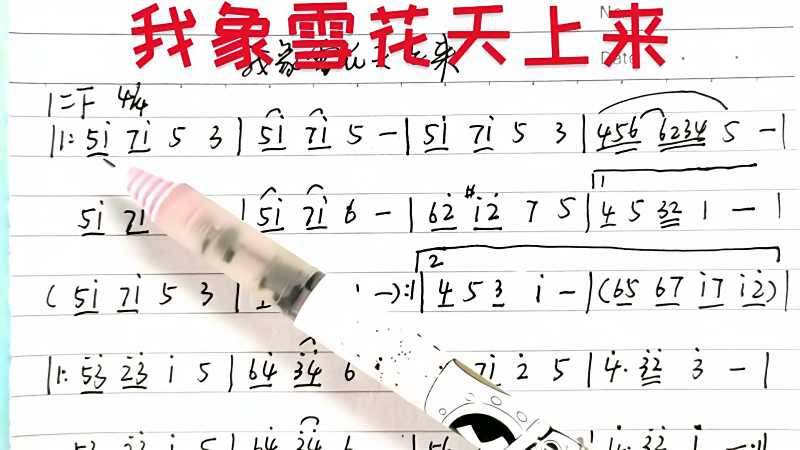 我象雪花天上来
我象雪花天上来
No
Date
1=F 4/4
‖: 5i 7i 5 3 | 5i 7i 5 - | 5i 7i 5 3 | 456 6234 5 - |
5i 7i | 5i 7i 6 - | 62̇ #i2̇ 7 5 | 1 4 5 32 1 - |
( 5i 7i 5 3 | - ) :‖ 2 4 5 3 i - | ( 65 67 i7 i2̇ ) |
‖: 5̇3̇ 2̇3̇ i 5 | 64̇ 3̇4̇ 6 7i 2̇ 5 | 4̇· 3̇2̇ 3̇ - |
i 5 | 64̇ 3̇4̇ 6 3̇2̇ i